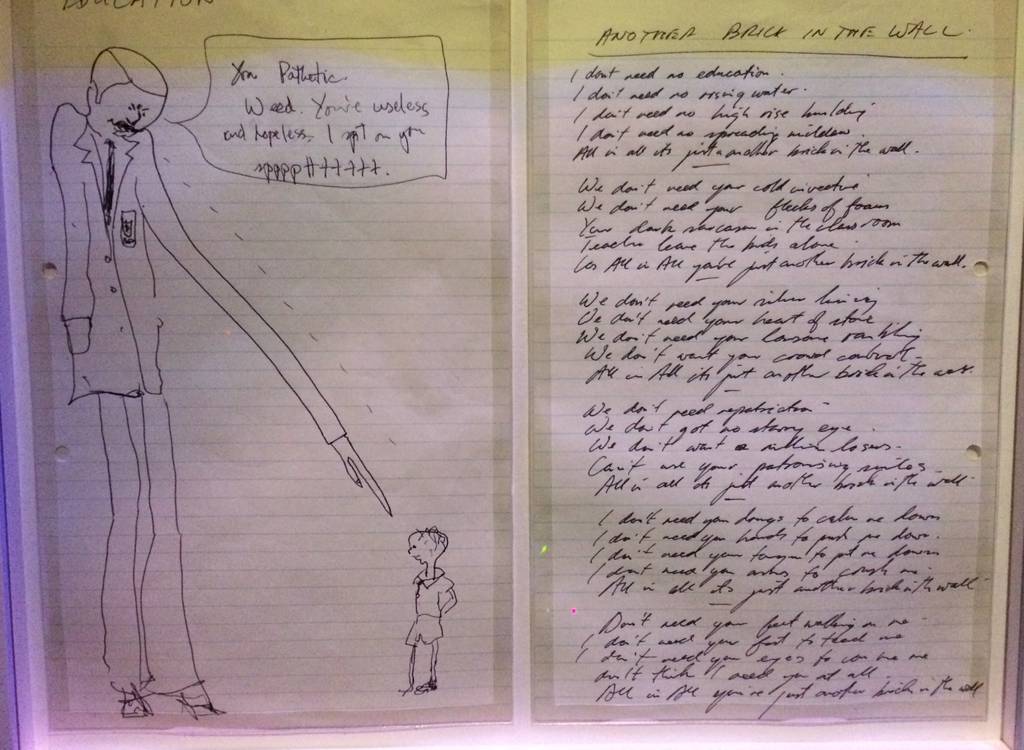 EDUCATION
You Pathetic
Weed. You're useless
and hopeless. I spit on you
ANOTHER BRICK IN THE WALL.
I dont need no education.
I don't need no rising water.
I don't need no high rise building
I don't need no spreading mildew.
All in all its just another brick in the wall.
We don't need your cold invective
We don't need your flecks of foam
Your dark sarcasm in the classroom
Teacher leave the kids alone.
Cos All in All you're just another brick in the wall.
We don't need your silver lining
We don't need your heart of stone
We don't need your rambling
We don't want your crowd control-
All in All its just another brick in the wall.
We don't need
We don't got no starry eye.
We don't want a
Can't use your patronising smiles.
All in all its just another brick in the wall-
I don't need your drugs to calm me down
I don't need your hands to push me down.
I don't need your tongue to put me down
I dont need your to crush me.
All in all its just another brick in the wall-
Don't need your feet walking on me-
I don't need your to me
I don't need your eyes to me
don't think I need you at all.
All in All you're just another brick in the wall